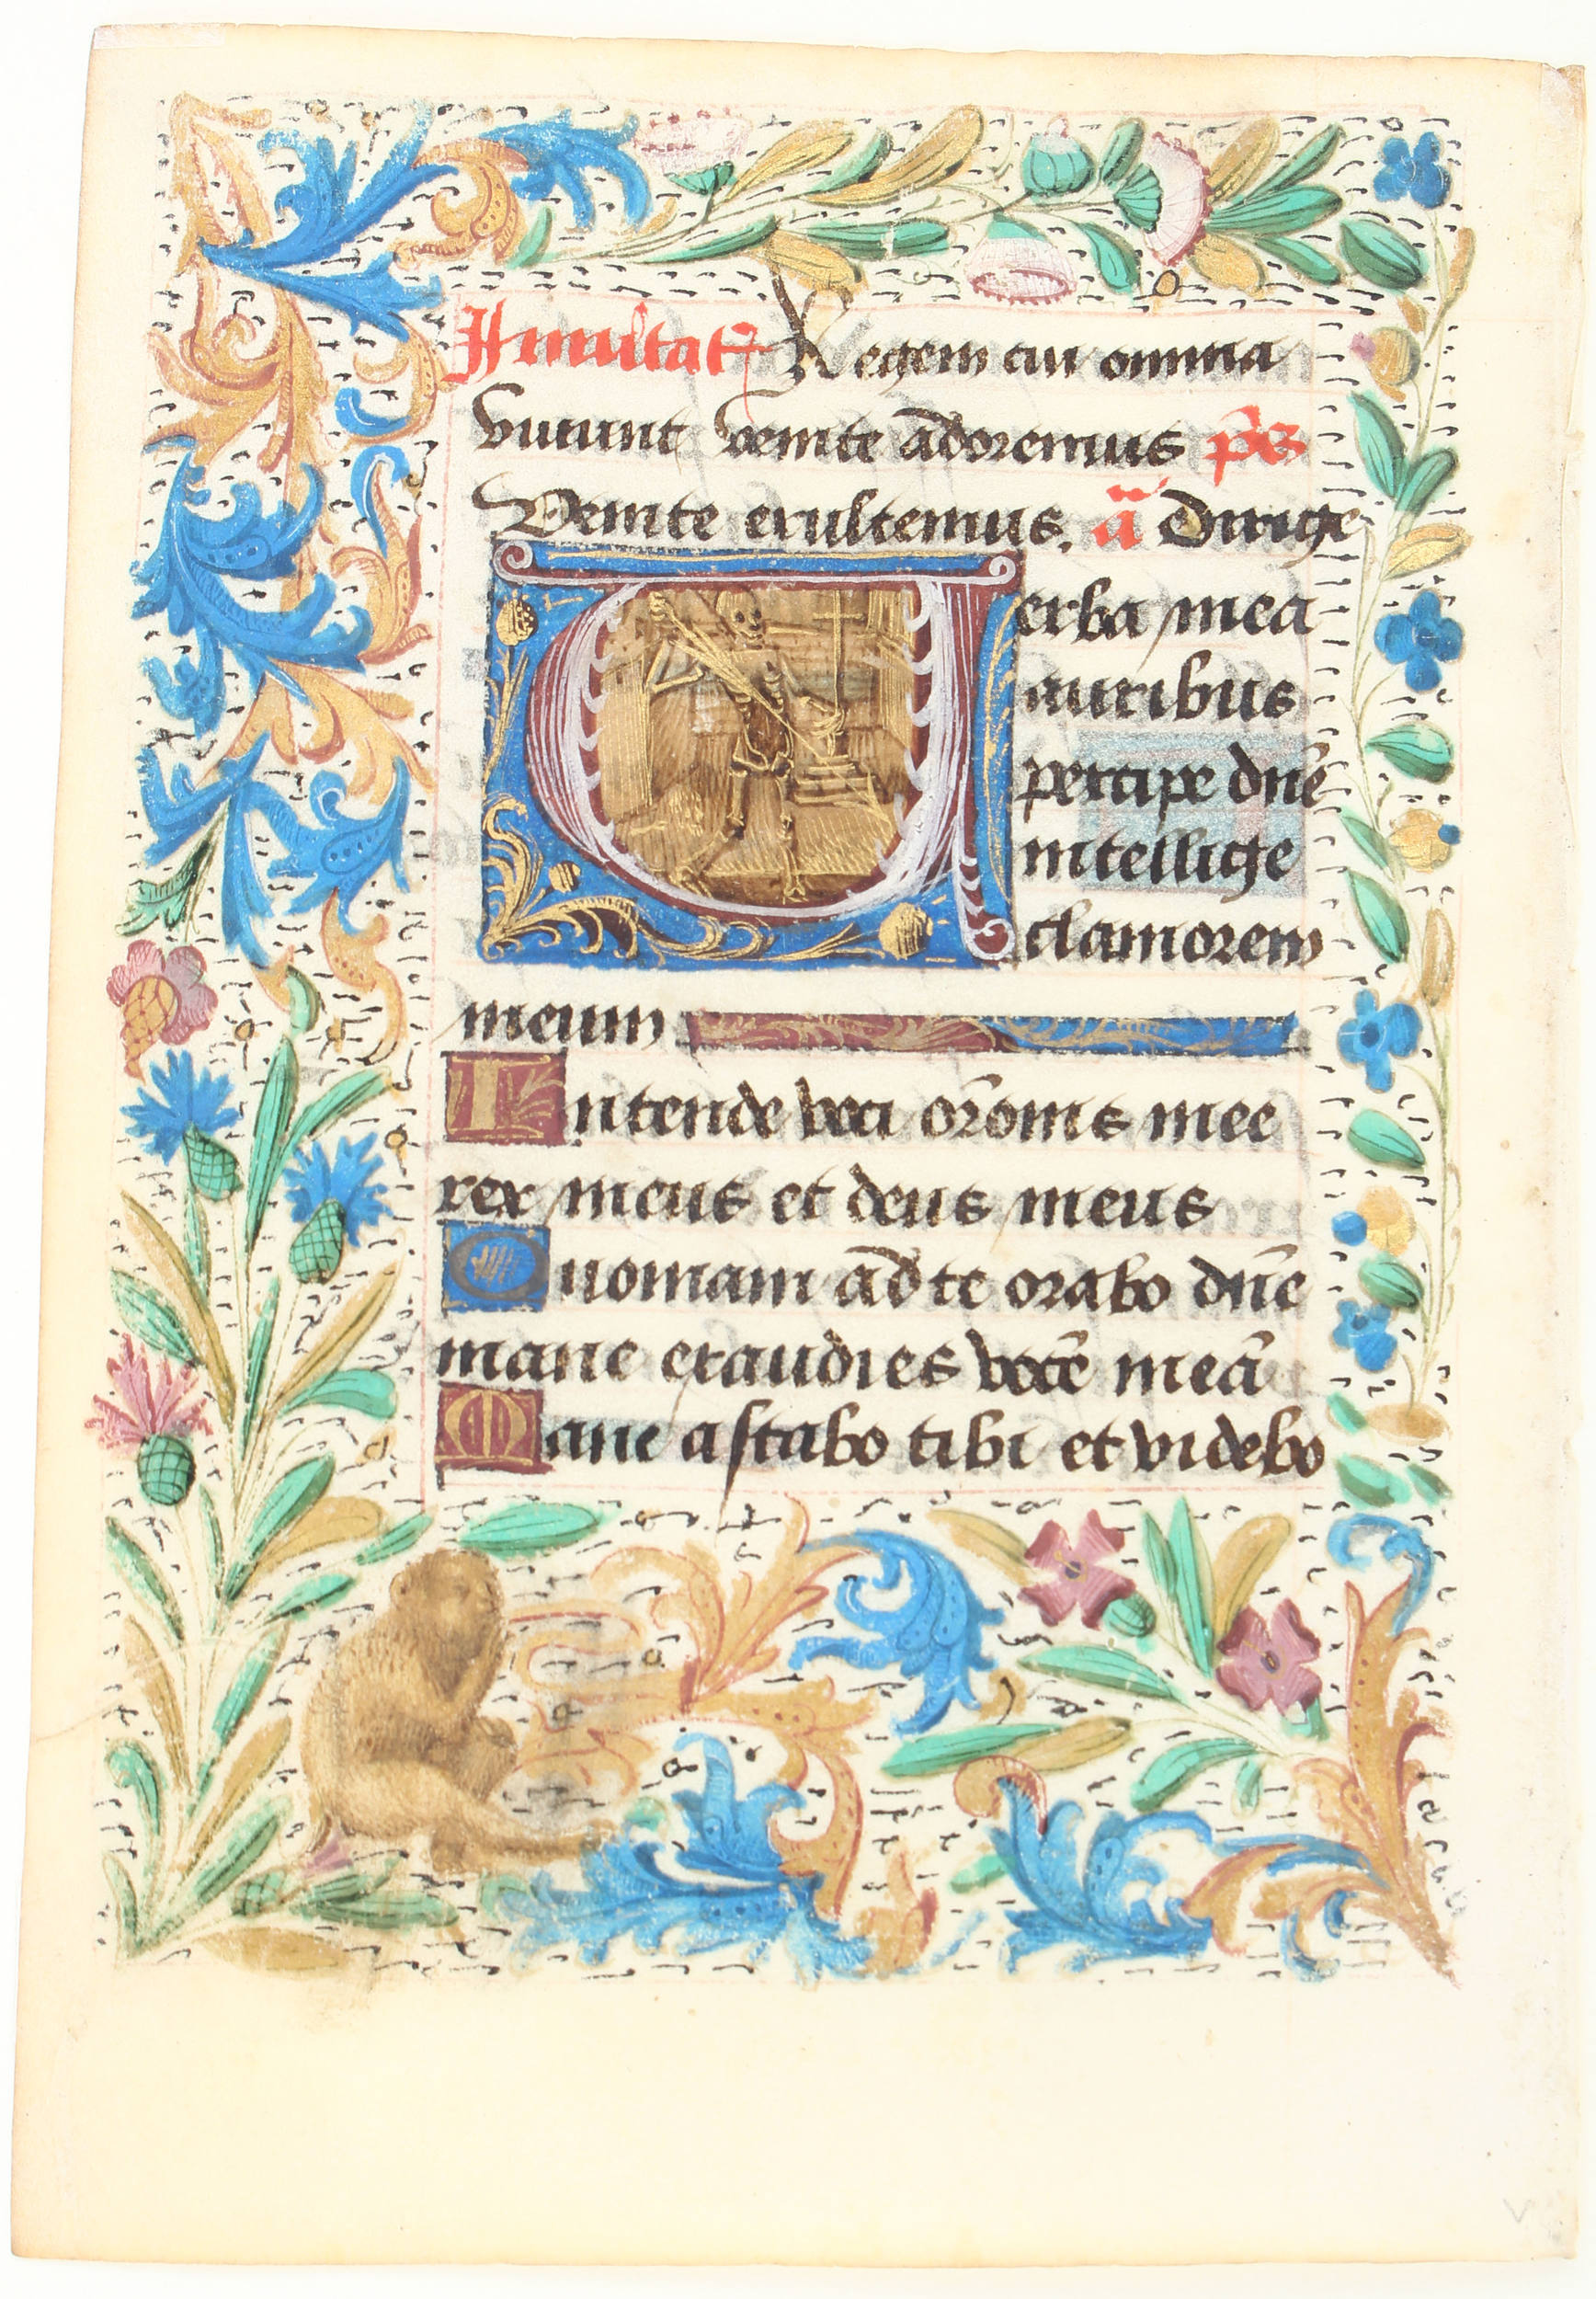 Inuitat Regem cui omnia
viuunt Venite adoremus ps
Venite exultemus. a Dirige
Verba mea
auribus
percipe dn̄e
intellige
clamorem
meum
Intende voci or̄onis mee
rex meus et deus meus
Quoniam ad te orabo dn̄e
mane exaudies vocē meā
Mane astabo tibi et videbo